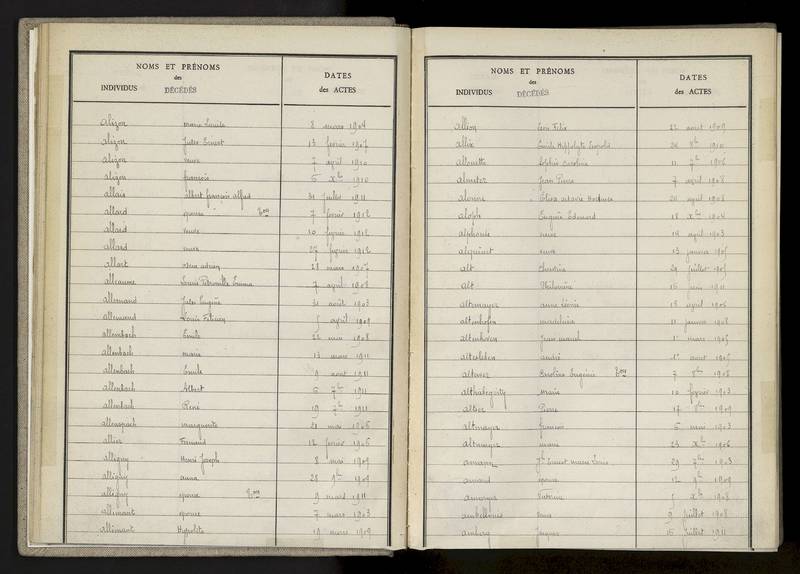 NOMS ET PRÉNOMS
des
INDIVIDUS DÉCÉDÉS
DATES
des ACTES
Alizon Marie Louise 8 mars 1904
Alizon Jules Ernest 13 février 1907
Alizon veuve 7 avril 1910
Alizon François 5 Xbre 1910
Allais Albert François Alfred 31 juillet 1911
Allard épouse 7 février 1912
Allard veuve 10 février 1912
Allard 27 février 1912
Allart 28 mars 1907
Alleaume Emma 7 avril 1908
Allemand Jules Eugène 31 août 1903
Allemand Louis Félicien avril 1909
Allembach Emile 22 mai 1908
Allenbach Marie 13 mars 1911
Allenbach Emile 9 août 1911
Allenbach Albert 6 7bre 1911
Allenbach René 19 7bre 1911
Allenspach Marguerite 21 mai 1906
Allier Fernand 12 février 1906
Alligny Henri Joseph 8 mai 1909
Alligny Anna 28 9bre 1909
Alligny épouse 9 mars 1911
Allimant épouse 7 mars 1903
Allimant Hypolite 19 mars 1909
NOMS ET PRÉNOMS
des
INDIVIDUS DÉCÉDÉS
DATES
des ACTES
Allion Léon Félix 22 août 1909
Allix Emile Hippolyte Léopold 26 8bre 1910
Alouette Sophie Caroline 11 7bre 1906
Jean Pierre 7 avril 1908
Elisa 20 avril 1908
Aloph Eugène Edouard 18 Xbre 1904
Alphonse veuve 14 avril 1903
Alquinet veuve 13 janvier 1905
Alt Christine 29 juillet 1905
Alt Philomène 16 juin 1911
Altmayer Anne 18 avril 1906
Altenhofen Madeleine 11 janvier 1908
Altenhoven Jean 1er mars 1905
André 1er août 1906
Caroline Eugénie 7 8bre 1908
Althabegoity Marie 10 février 1903
Altier Pierre 17 8bre 1909
Altmayer François 6 mai 1903
Altmayer Marie 23 Xbre 1906
Amann Ernest Marie Louis 29 7bre 1903
Amand épouse 12 9bre 1909
Xbre 1908
juillet 1908
Jacques 15 juillet 1911